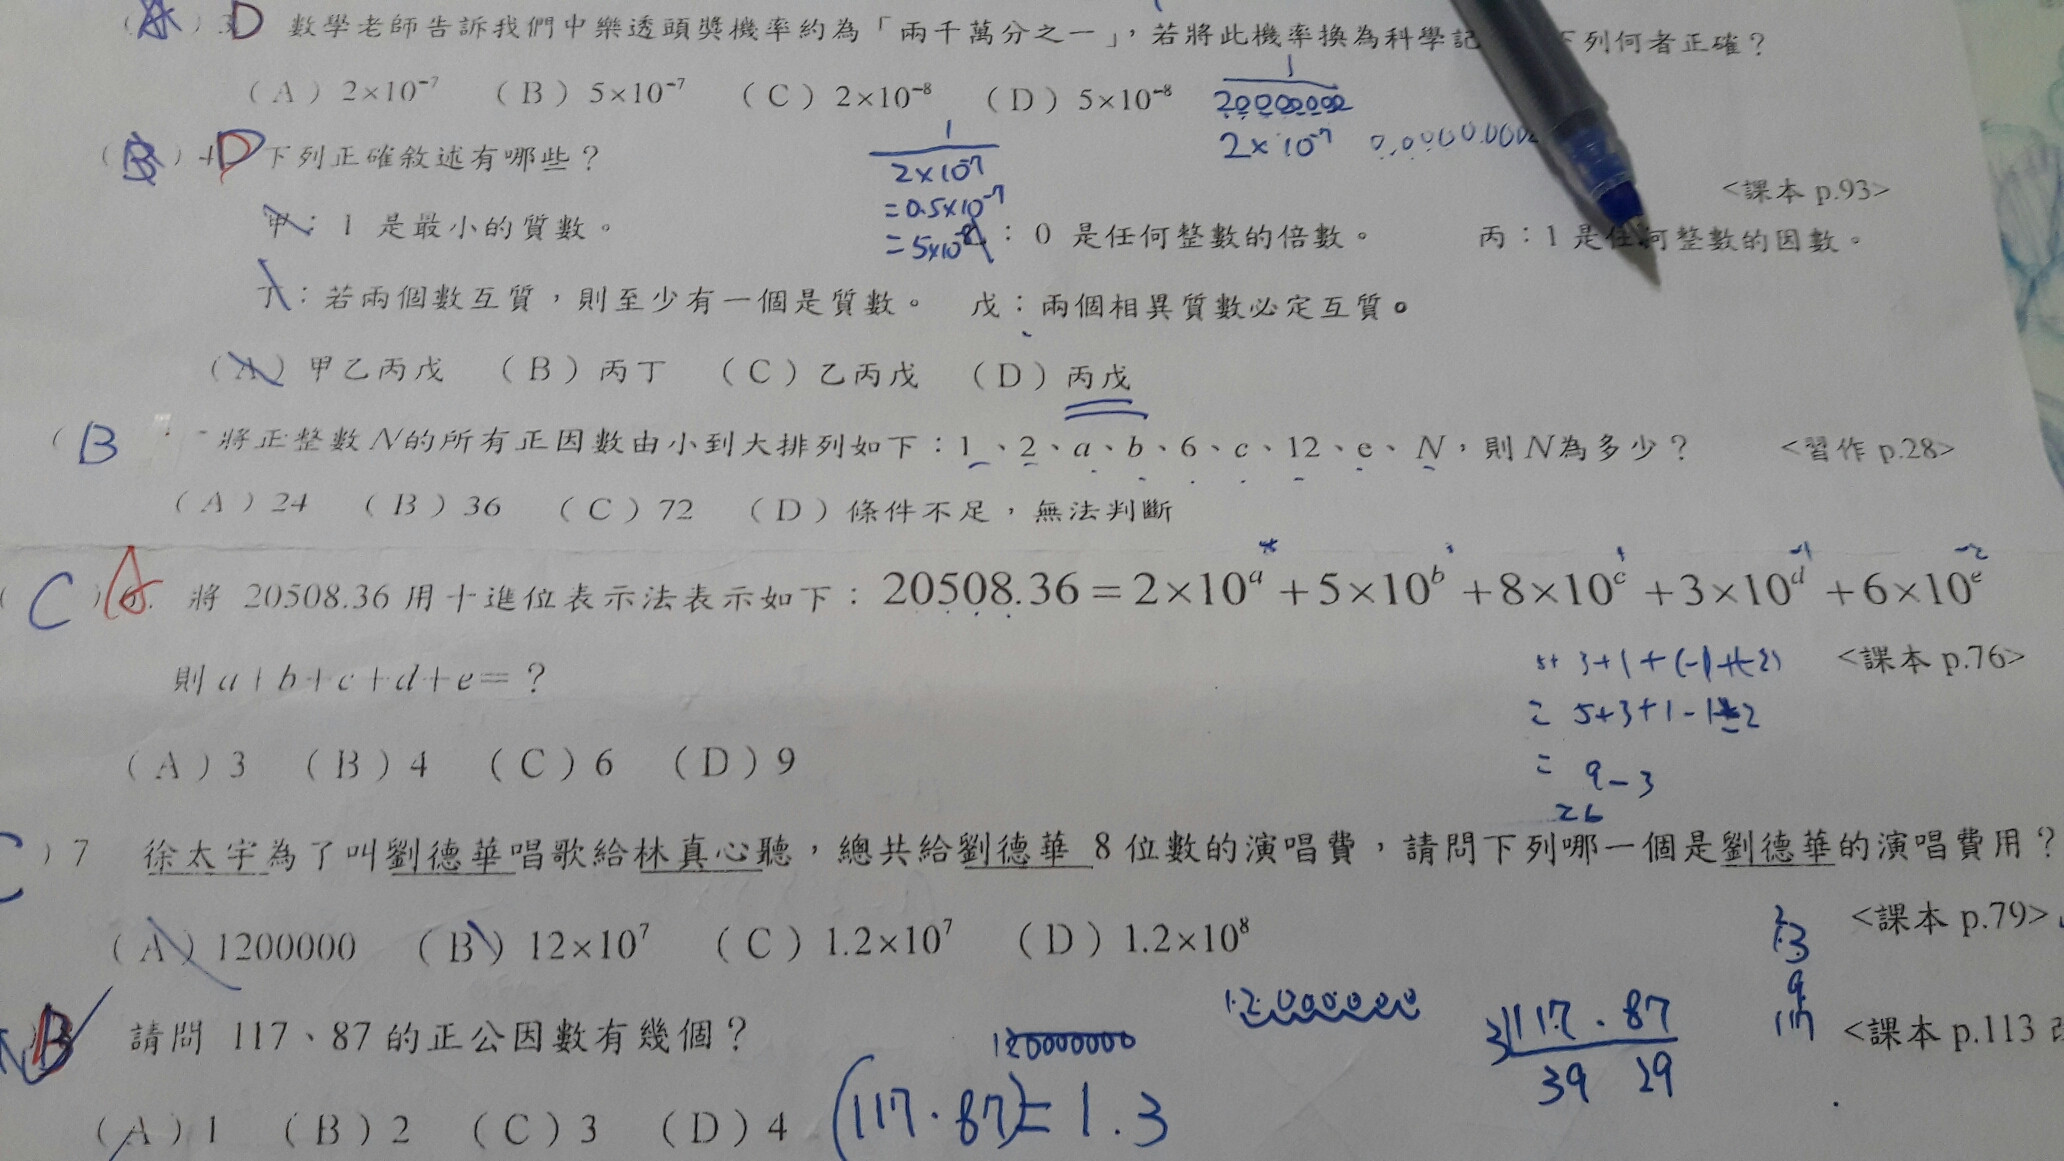 (A) 3 D 數學老師告訴我們中樂透頭獎機率約為「兩千萬分之一」，若將此機率換為科學記 下列何者正確？
（A）2×10⁻⁷ （B）5×10⁻⁷ （C）2×10⁻⁸ （D）5×10⁻⁸
1
20000000
2×10⁻⁷
(B) 4 D 下列正確敘述有哪些？
1
2×10⁻⁷
=0.5×10⁻⁷
=5×10⁻⁸
<課本 p.93>
甲：1 是最小的質數。 ：0 是任何整數的倍數。 丙：1 是任何整數的因數。
丁：若兩個數互質，則至少有一個是質數。 戊：兩個相異質數必定互質。
（A）甲乙丙戊 （B）丙丁 （C）乙丙戊 （D）丙戊
( B 將正整數N的所有正因數由小到大排列如下：1、2、a、b、6、c、12、e、N，則N為多少？ <習作 p.28>
（A）24 （B）36 （C）72 （D）條件不足，無法判斷
( C ) A 將 20508.36 用十進位表示法表示如下：20508.36＝2×10ᵃ＋5×10ᵇ＋8×10ᶜ＋3×10ᵈ＋6×10ᵉ
-1 -2
則a+b+c+d+e=？ <課本 p.76>
5+3+1+(-1)+(-2)
= 5+3+1-1-2
= 9-3
=6
（A）3 （B）4 （C）6 （D）9
C ) 7 徐太宇為了叫劉德華唱歌給林真心聽，總共給劉德華 8 位數的演唱費，請問下列哪一個是劉德華的演唱費用？
<課本 p.79>
（A）1200000 （B）12×10⁷ （C）1.2×10⁷ （D）1.2×10⁸
B 請問 117、87 的正公因數有幾個？ <課本 p.113
3 117.87
39 29
（A）1 （B）2 （C）3 （D）4
(117.87)=1.3